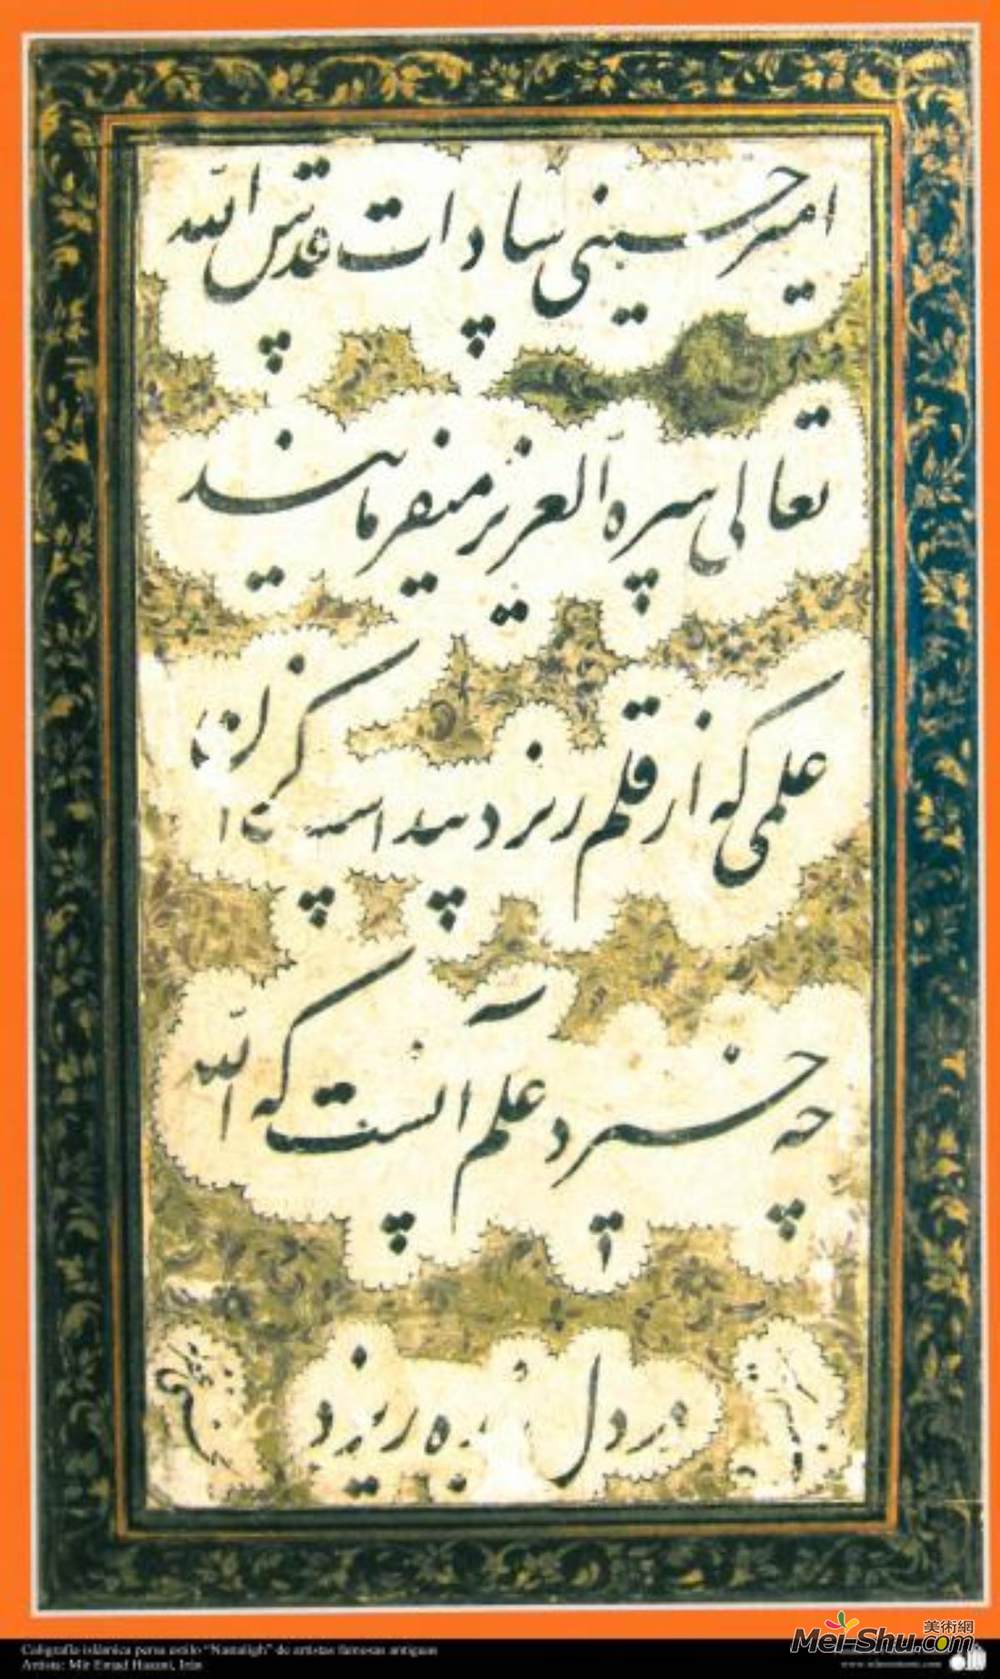 امیر حسینی سادات قدس الله
تعالی سره العزیز میفرمایند
علمی که از قلم ریزد پیداست کزان
چه خیزد علم آنست که الله
در دل بنده ریزد
Caligrafía islámica persa estilo "Nastaligh" de artistas famosas antiguas
Artista: Mir Emad Hasani, Irán
美術網
Mei-Shu.com